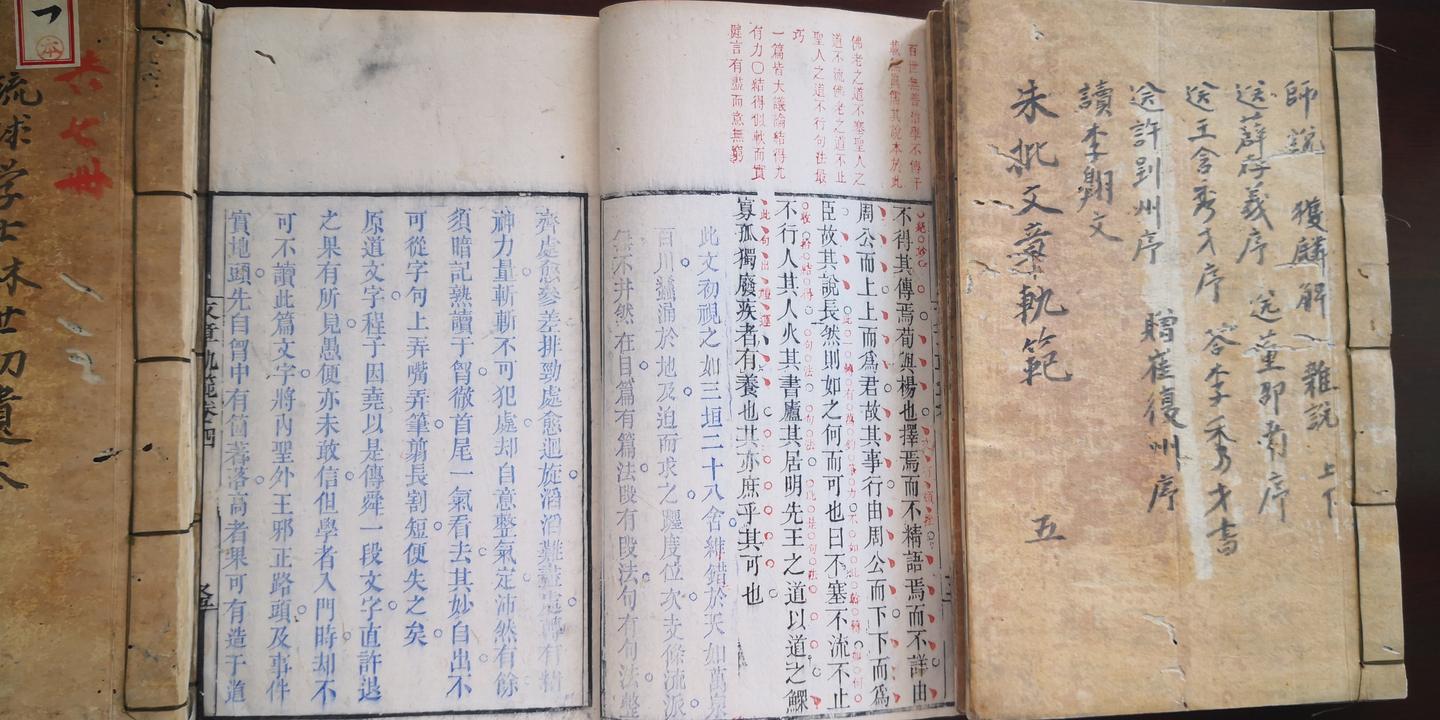 師說 獲麟解 雜說 上下
送薛存義序 送董邵南序
送王含秀才序 答李秀才書
送許郢州序 贈崔復州序
讀李翺文
朱批文章軌範 五
百世無善治學不傳千
佛老之道不塞聖人之
道不流佛老之道不止
聖人之道不行句法最
巧
一篇皆大議論結得尤
有力〇結得似軟而實
健言有盡而意無窮
不得其傳焉荀與楊也擇焉而不精語焉而不詳由
周公而上上而爲君故其事行由周公而下下而爲
臣故其說長然則如之何而可也曰不塞不流不止
不行人其人火其書廬其居明先王之道以道之鰥
寡孤獨廢疾者有養也其亦庶乎其可也
此文初視之如三垣二十八舍雜錯於天如萬泉
百川 涌於地及迫而求之躔度位次支條流派
無不井然在目篇有篇法段有段法句有句法整
齊處愈參差排勁處愈迴旋滔滔難盡處 有精
神力量斬斬不可犯處却自意整氣定沛然有餘
須暗記熟讀于胷徹首尾一氣看去其妙自出不
可從字句上弄嘴弄筆翦長割短便失之矣
原道文字程子因堯以是傳舜一段文字直許退
之果有所見愚便亦未敢信但學者入門時却不
可不讀此篇文字將內聖外王邪正路頭及事件
實地頭先自胷中有箇著落高者果可有造于道
文章軌範卷四
共七冊
琉球学士